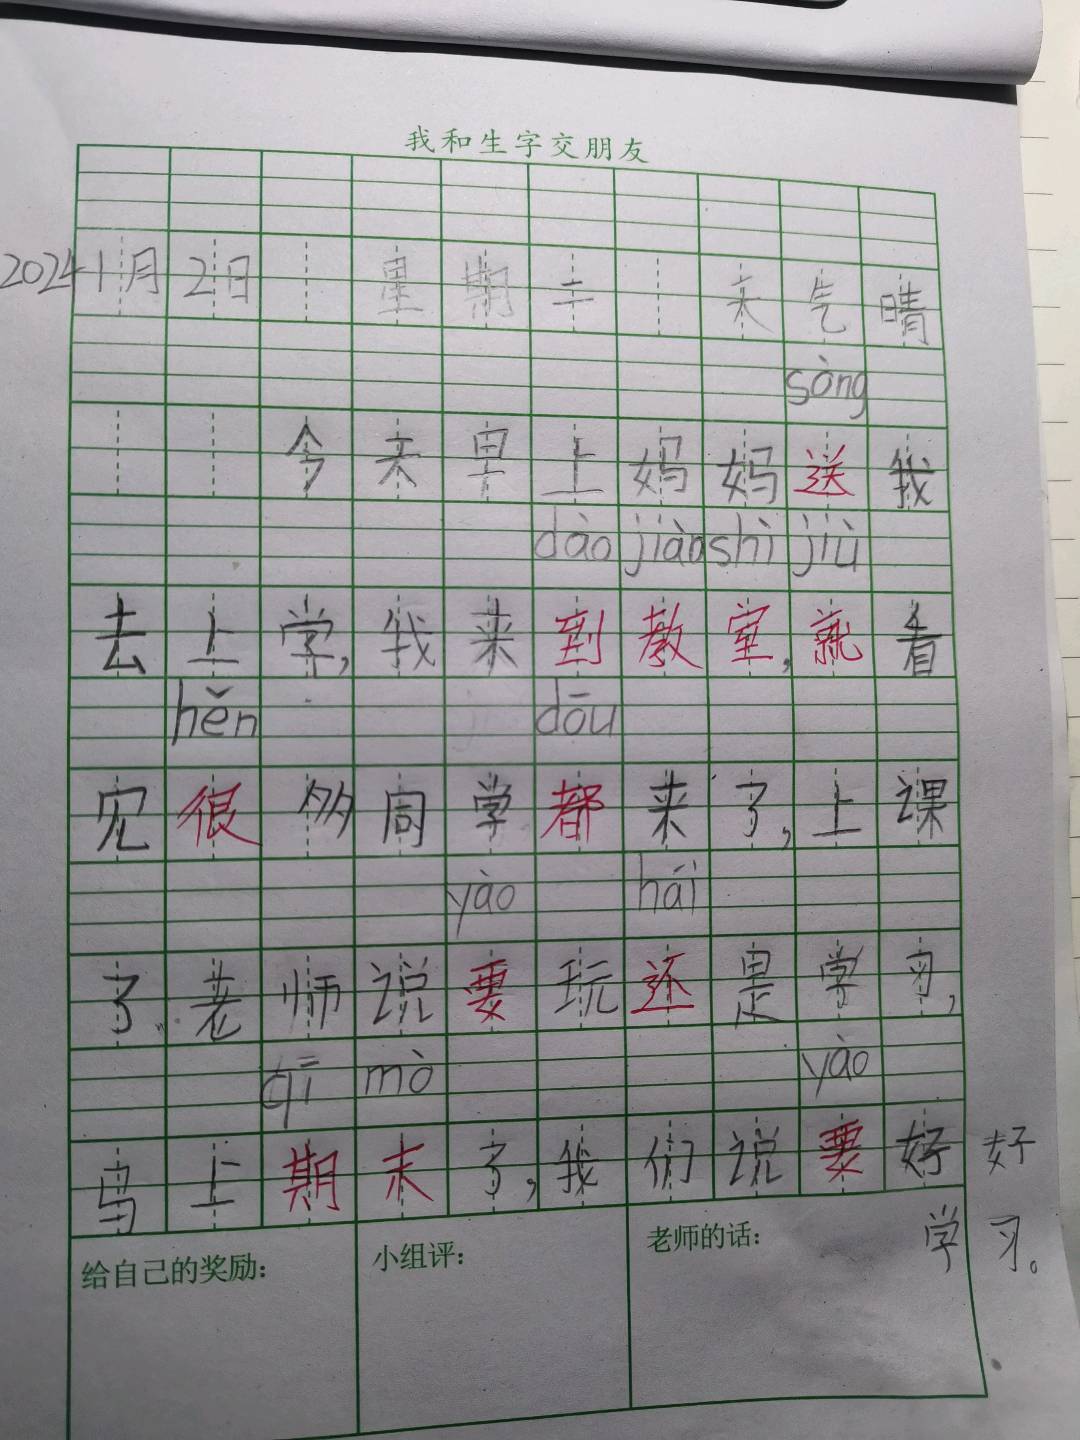 我和生字交朋友
2024 1月2日 星期二 天气晴
sòng
今天早上妈妈送我
dào jiào shì jiù
去上学,我来到教室,就看
hěn dōu
见很多同学都来了,上课
yào hái
了、老师说要玩还是学习,
qī mò yào
马上期末了,我们说要好好
学习。
给自己的奖励: 小组评: 老师的话: